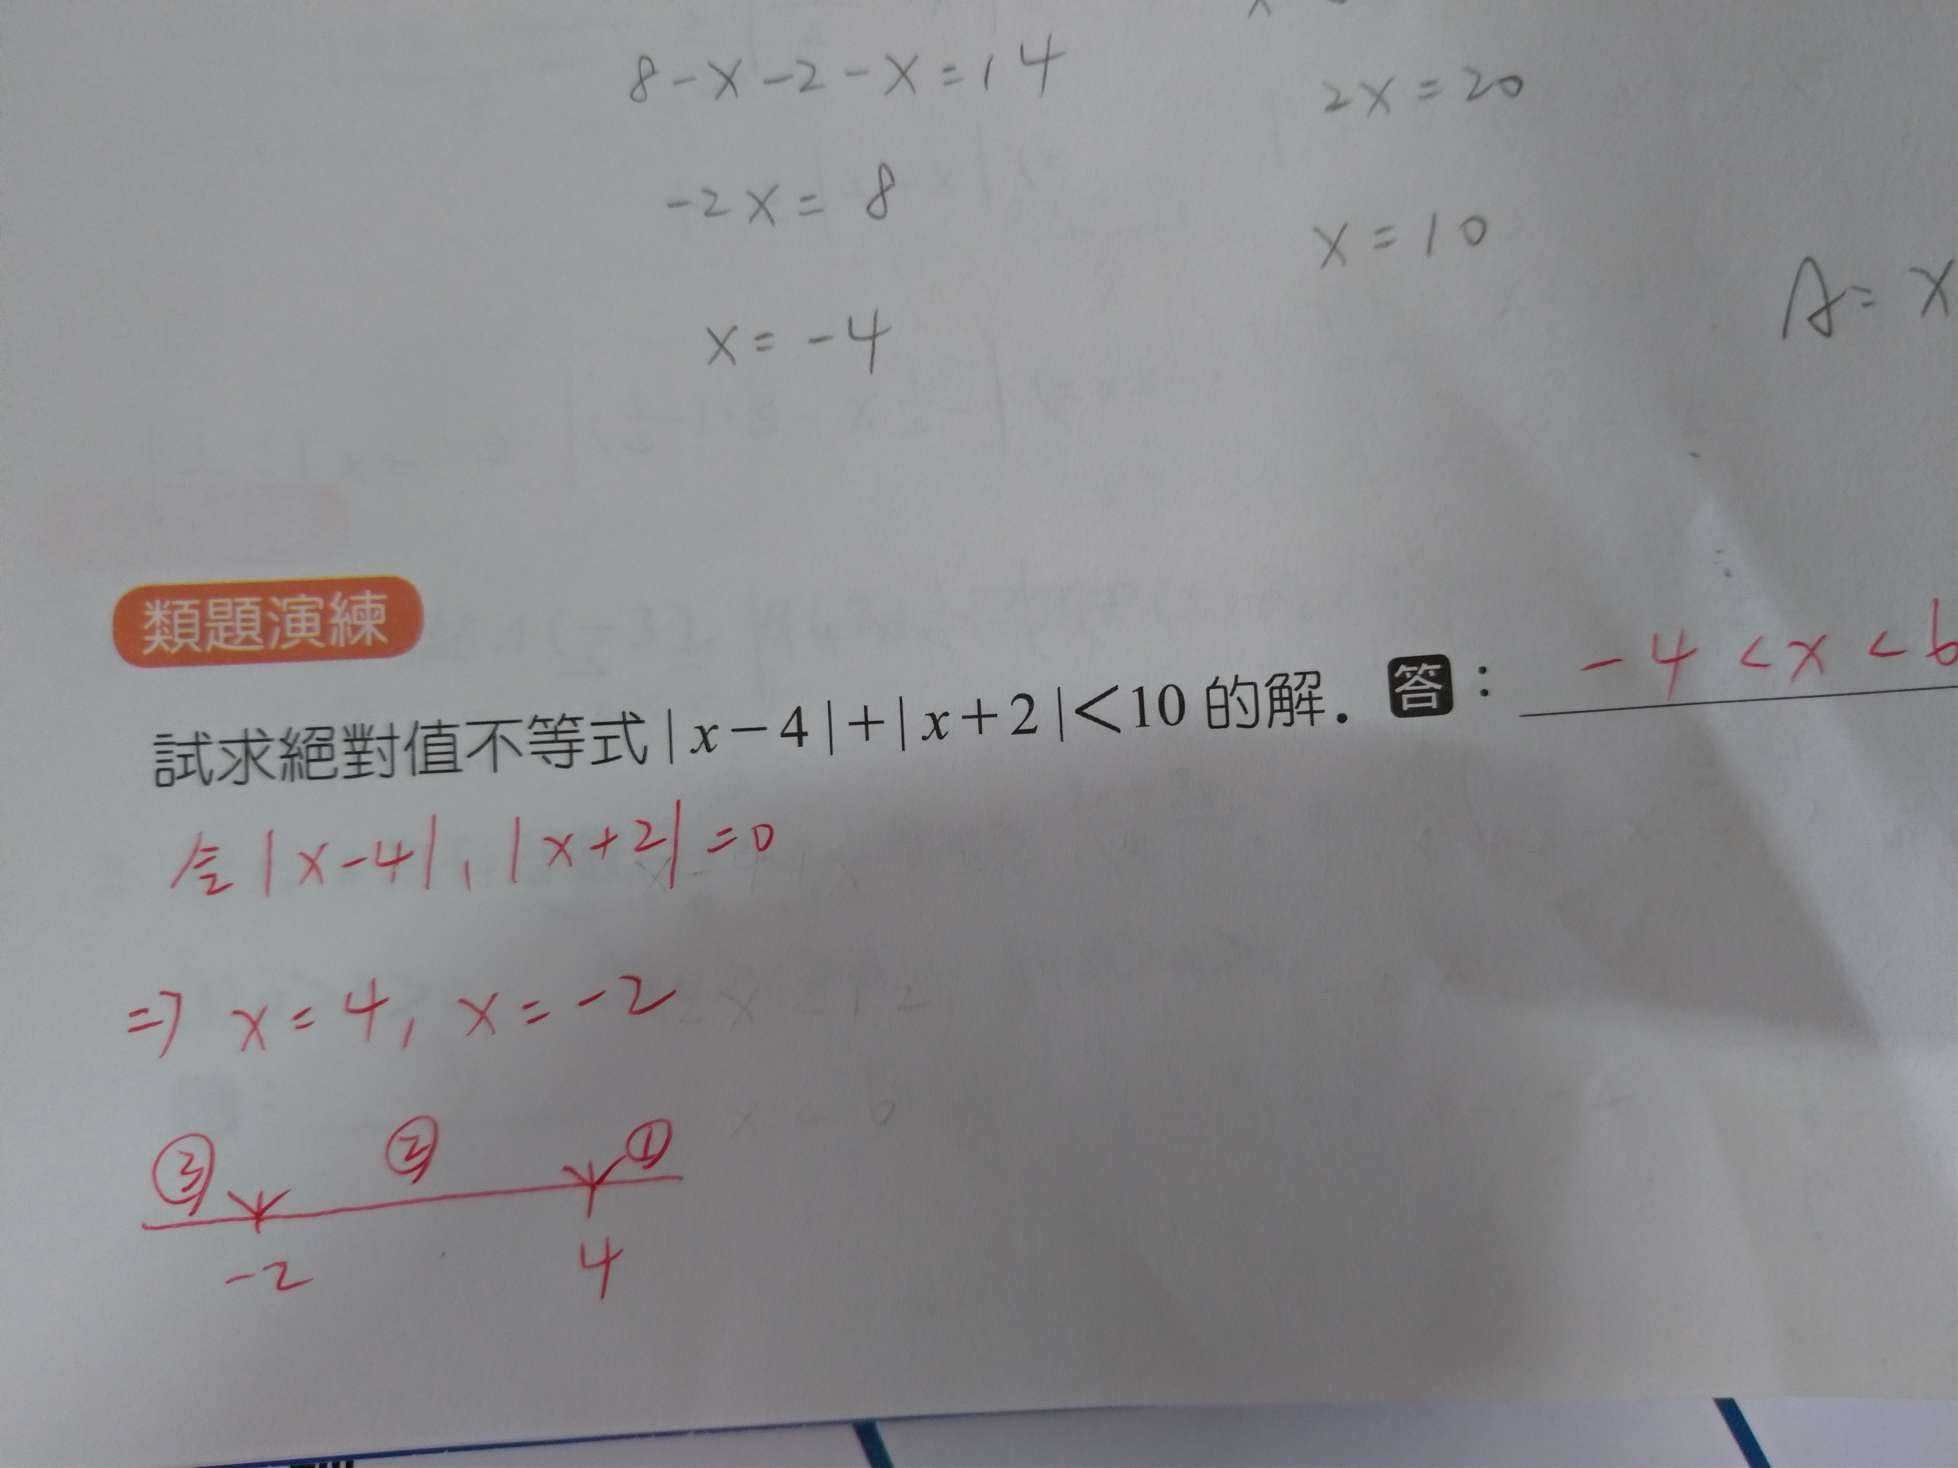 8-x-2-x=14
2x=20
-2x=8
x=10
x=-4
A=x
類題演練
試求絕對值不等式|x-4|+|x+2|<10的解. 答: -4<x<6
令|x-4|,|x+2|=0
⇒ x=4, x=-2
③ ② ①
-2 4